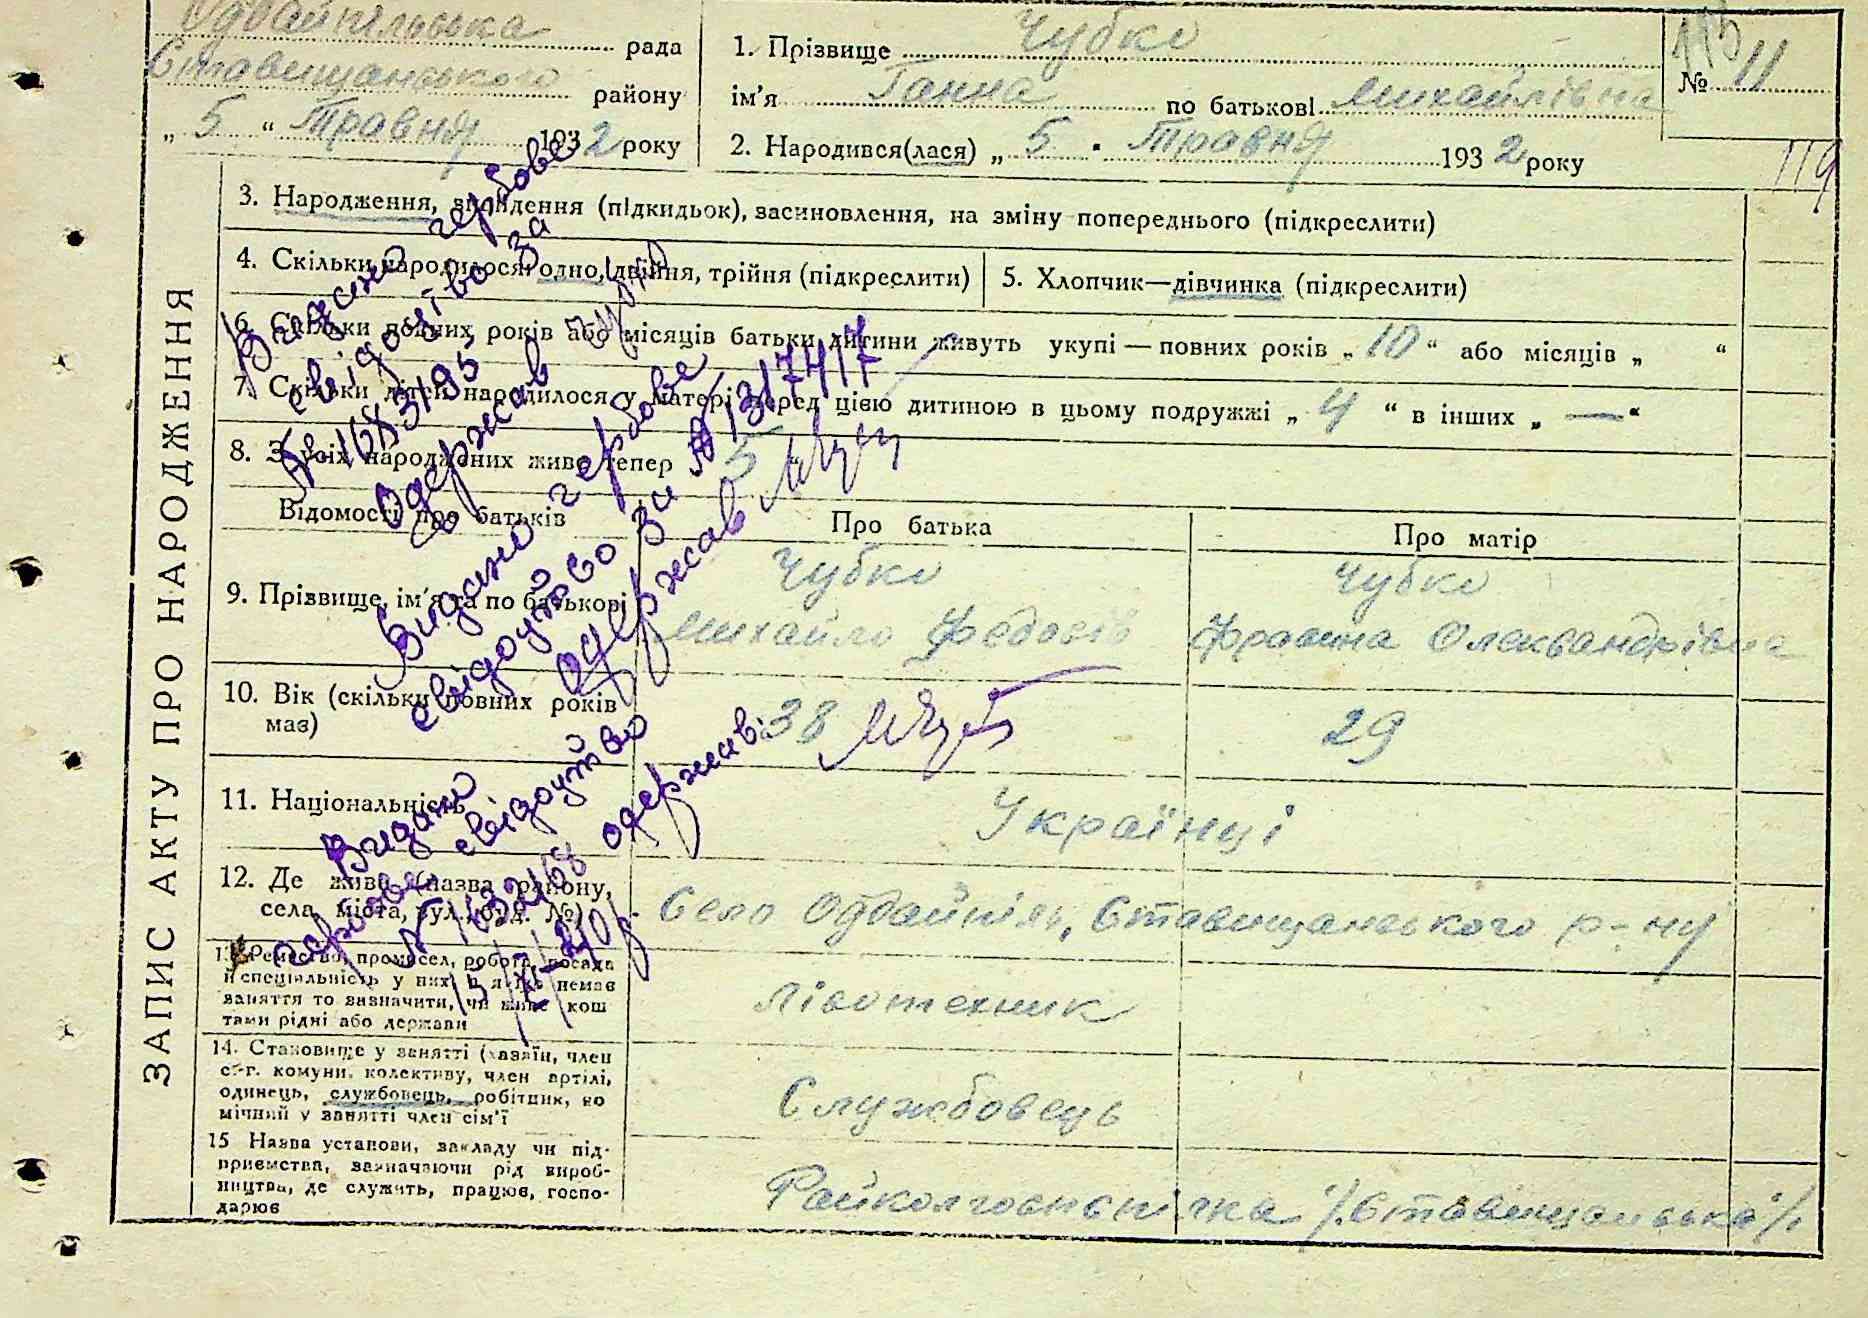 Одбайпільська рада
Ставищанського району
„ 5 “ Травня 1932 року
1. Прізвище Чубко
ім'я Ганна по батькові Михайлівна
2. Народився(лася) „ 5 “ Травня 1932 року
№ 11
113
119
ЗАПИС АКТУ ПРО НАРОДЖЕННЯ
3. Народження, знайдення (підкидьок), засиновлення, на зміну попереднього (підкреслити)
4. Скільки народилося: одно, двійня, трійня (підкреслити)
5. Хлопчик—дівчинка (підкреслити)
6. Скільки повних років або місяців батьки дитини живуть укупі — повних років „ 10 “ або місяців „ “
7. Скільки дітей народилося у матері перед цією дитиною в цьому подружжі „ 4 “ в інших „ — “
8. З усіх народжених живе тепер 5
Відомості про батьків
Про батька
Про матір
9. Прізвище, ім'я та по батькові
Чубко
Михайло Федосів
Чубко
Фросина Олександрівна
10. Вік (скільки повних років має)
38
29
11. Національність
Українці
12. Де живе (назва району, села, міста, вул., буд. №)
Село Одбайпіль, Ставищанського р-ну
13. Ремество, промисел, робота, посада
й спеціальність у них, а як не має
заняття то зазначити, чи живе кош
тами рідні або держави
Лівотехник
14. Становище у занятті (хазяїн, член
с.-г. комуни, колективу, член артілі,
одинець, службовець, робітник, по
мічний у занятті член сім'ї
Службовець
15 Назва установи, закладу чи під-
приємства, зазначаючи рід вироб-
ництва, де служить, працює, госпо-
дарює
Райколгоспспілка /Ставищанська/
Видано гербове
свідоцтво за
№ 1683195
Одержав
Видано гербове
свідоцтво за № 1317417
Одержав
Видано
гербове свідоцтво
№ 1632168 одержав: